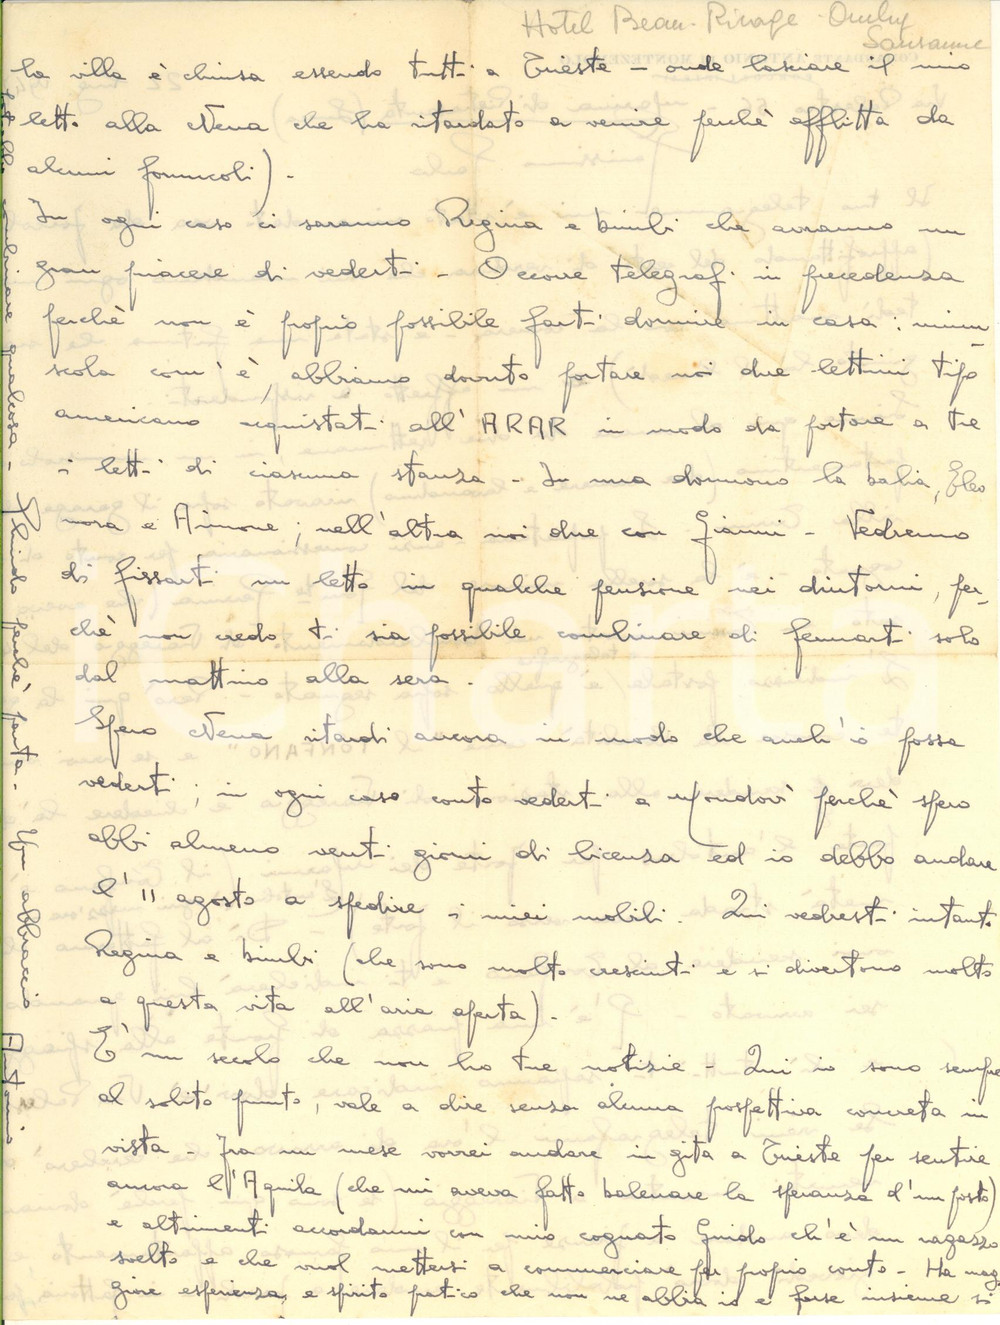 Hotel Beau-Rivage - Ouchy
Lausanne
la villa è chiusa essendo tutti a Trieste - onde lasciare il mio
letto alla Nena che ha ritardato a venire perchè afflitta da
alcuni foruncoli) -
In ogni caso ci saranno Regina e bimbi che avranno un
gran piacere di vederti - Occorre telegrafi in precedenza
perchè non è proprio possibile farti dormire in casa: minu-
scola com'è, abbiamo dovuto portare noi due lettini tipo
americano acquistati all'ARAR in modo da portare a tre
i letti di ciascuna stanza - In una dormono la balia, Eleo
nora e Aimone; nell'altra noi due con Gianni - Vedremo
di fissarti un letto in qualche pensione nei dintorni, per-
chè non credo ti sia possibile combinare di fermarti solo
dal mattino alla sera.
Spero Nena ritardi ancora in modo che anch'io possa
vederti; in ogni caso conto vederti a Mondovì perchè spero
abbi almeno venti giorni di licenza ed io debbo andare
l'11 agosto a spedire i miei mobili. Qui vedresti intanto
Regina e bimbi (che sono molto cresciuti e si divertono molto
a questa vita all'aria aperta) -
È un secolo che non ho tue notizie - Qui io sono sempre
al solito punto, vale a dire senza alcuna prospettiva concreta in
vista - Fra un mese vorrei andare in gita a Trieste per sentire
ancora l'Aquila (che mi aveva fatto balenare la speranza d'un posto)
e altrimenti accordarmi con mio cognato Guido ch'è un ragazzo
svelto e che vuol mettersi a commerciare per proprio conto - Ha mag
giore esperienza e spirito pratico che non ne abbia io e forse insieme si
potrebbe combinare qualcosa - Chiudo perchè parta - Un abbraccio Antonio
iCharta